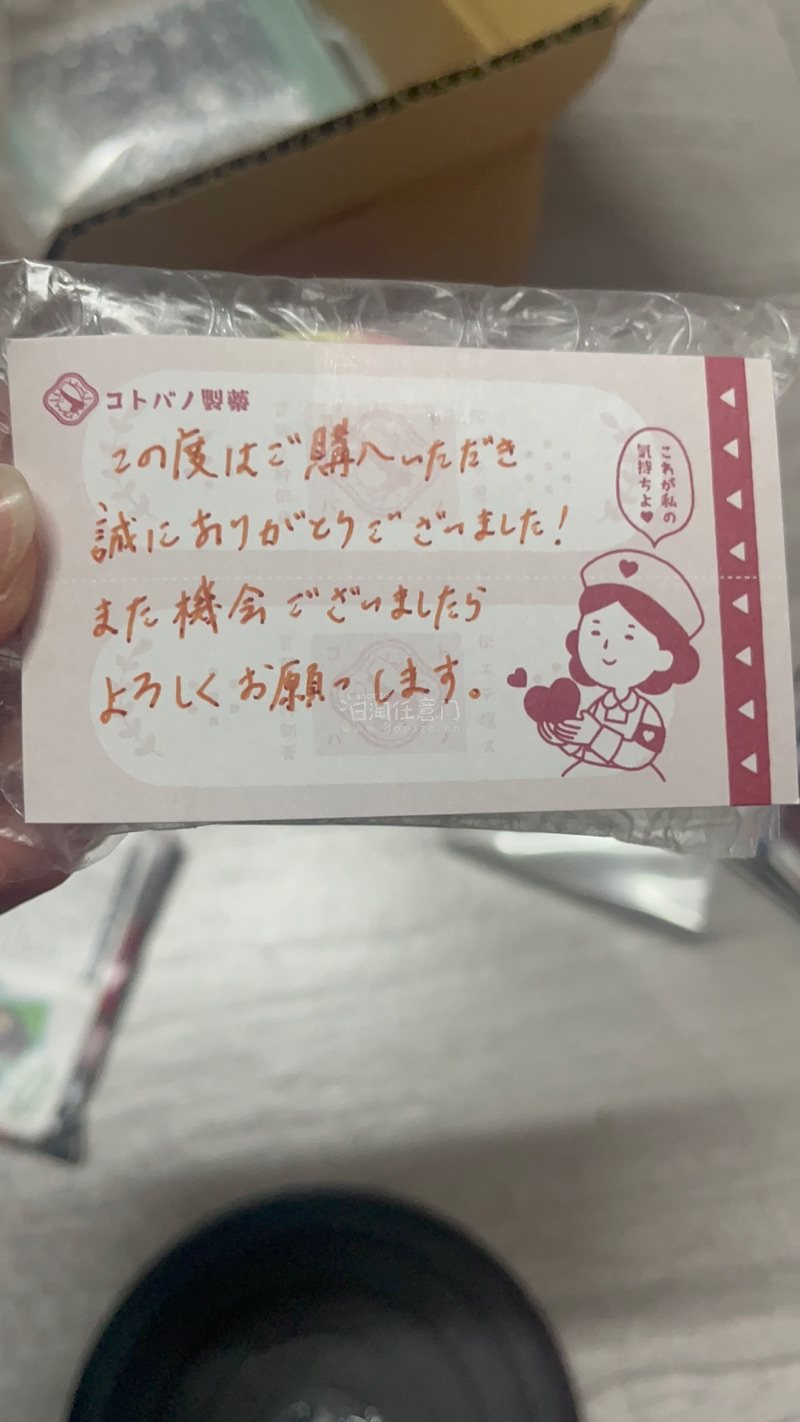 コトバノ製薬
この度はご購入いただき
誠にありがとうございました！
また機会ございましたら
よろしくお願いします。
これが私の
気持ちよ♥
泊淘任意门
www.dopizc.cn